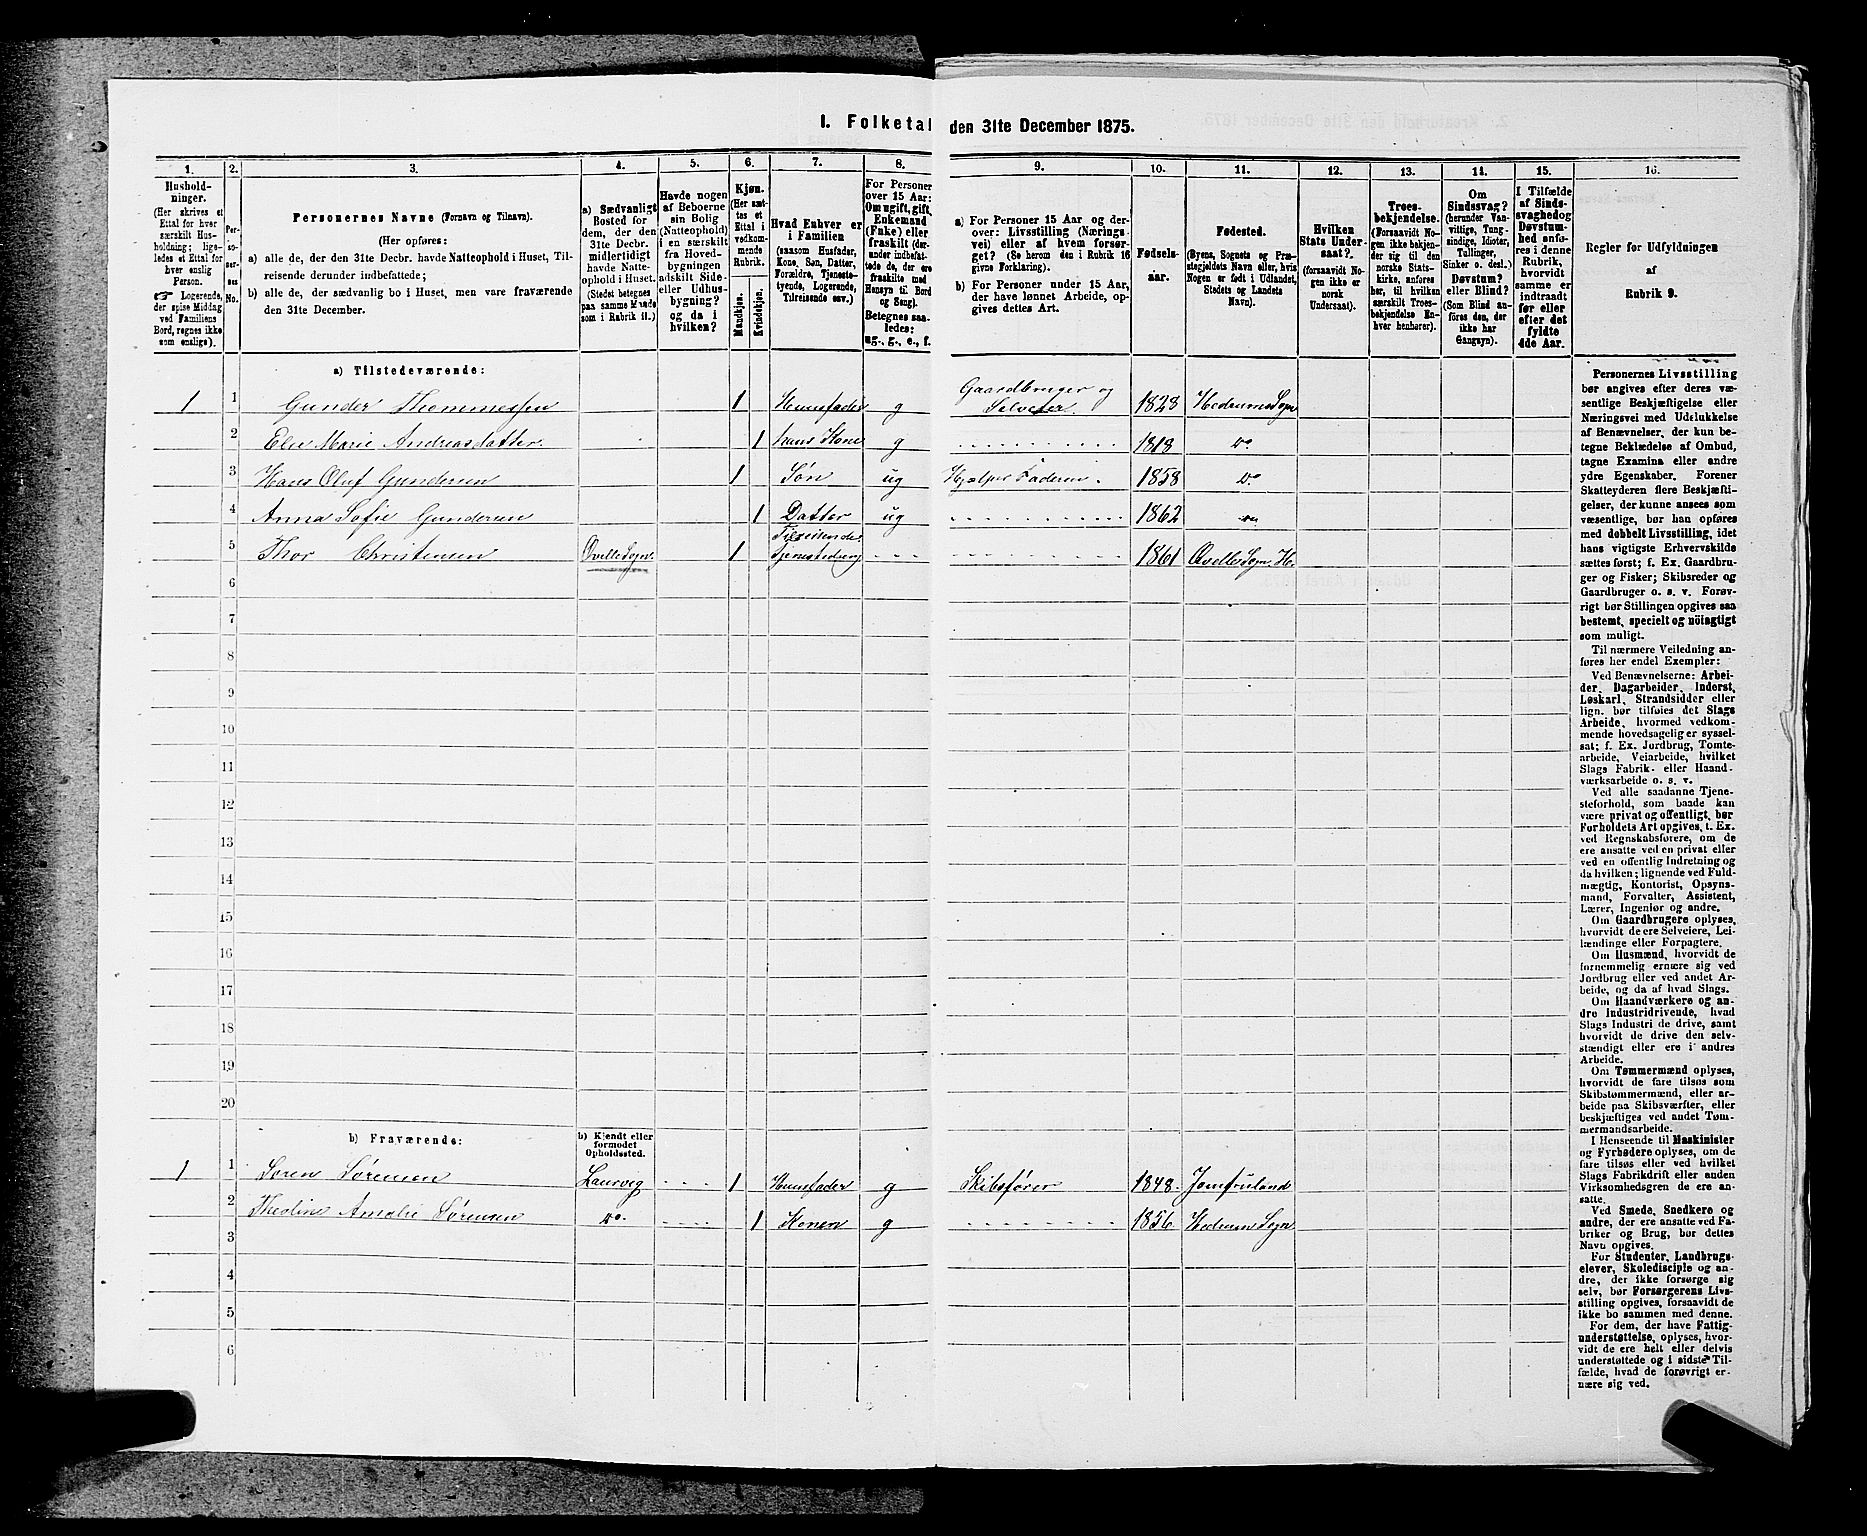 I. Folketal den 31te December 1875.
1.
2.
3.
4.
5.
6.
7.
8.
9.
10.
11.
12.
13.
14.
15.
16.
Hushold-
ninger.
(Her skrives et
Ettal for hver
særskilt Hus-
holdning; lige-
ledes et Ettal for
hver enslig
Person.
Logerende,
der spise Middag
ved Familiens
Bord, regnes ikke
som enslige).
Per-
so-
ner-
nes
No.
Personernes Navne (Fornavn og Tilnavn).
(Her opføres:
a) alle de, der den 31te Decbr. havde Natteophold i Huset, Til-
reisende derunder indbefattede;
b) alle de, der sædvanlig bo i Huset, men vare fraværende
den 31te December.
a) Sædvanligt
Bosted for
dem, der den
31te Decbr.
midlertidigt
havde Natte-
ophold i Huset.
(Stedet betegnes
paa samme Maade
som i Rubrik 11.)
Havde nogen
af Beboerne
sin Bolig
(Natteophold)
i en særskilt
fra Hoved-
bygningen
adskilt Side-
eller Udhus-
bygning?
og da i
hvilken?
Kjøn.
(Her sæt-
tes et
Ettal i
vedkom-
mende
Rubrik.
Mandkjøn.
Kvindekjøn.
Hvad Enhver er
i Familien
(saasom Husfader,
Kone, Søn, Datter,
Forældre, Tjeneste-
tyende, Logerende,
Tilreisende osv.)
For Personer
over 15 Aar:
Om ugift, gift,
Enkemand
(Enke) eller
fraskilt (der-
under indbefat-
tede de, der ere
fraskilte med
Hensyn til Bord
og Seng).
Betegnes saa-
ledes:
ug., g., e., f.
a) For Personer 15 Aar og der-
over: Livsstilling (Nærings-
vei) eller af hvem forsør-
get? (Se herom den i Rubrik 16
givne Forklaring).
b) For Personer under 15 Aar,
der have lønnet Arbeide, op-
gives dettes Art.
Fødsels-
aar.
Fødested.
(Byens, Sognets og Præ-
stegjeldets Navn eller, hvis
Nogen er født i Udlandet,
Stedets og Landets
Navn).
Hvilken
Stats Under-
saat?
(forsaavidt No-
gen ikke er
norsk
Undersaat).
Troes-
bekjendelse.
(Forsaavidt No-
gen ikke bekjen-
der sig til den
norske Stats-
kirke, anføres
her, til hvilken
særskilt Troes-
bekjendelse En-
hver henhører).
Om
Sindssvag?
(herunder Van-
vittige, Tung-
sindige, Idioter,
Tullinger,
Sinker o. desl.)
Døvstum?
eller Blind?
(Som Blind an-
føres den, der
ikke har
Gangsyn).
I Tilfælde
af Sinds-
svaghed og
Døvstum-
hed anfø-
res i denne
Rubrik,
hvorvidt
samme er
indtraadt
før eller
efter det
fyldte
4de Aar.
Regler for Udfyldningen
af
Rubrik 9.
a) Tilstedeværende:
1 1 Gunder Thommessen 1 Huusfader g Gaardbruger og Selveier 1828 Hedrums Sogn
2 Else Marie Andreasdatter 1 hans Kone g 1818 Do
3 Hans Oluf Gundersen 1 Søn ug Hjælper Faderen. 1858 Do
4 Anna Sofie Gundersen 1 Datter ug 1862 Do
5 Thor Christensen Qvelle Sogn 1 Tilreisende Tjenestedreng 1861 Qvelle Sogn, He.
6
7
8
9
10
11
12
13
14
15
16
17
18
19
20
b) Fraværende:
b) Kjendt eller
formodet
Opholdssted.
1 1 Søren Sørensen Laurvig 1 Huusfader g Skibsfører 1848. Jomfruland
2 Theoline Amalie Sørensen Do. 1 Konen g 1856 Hedrum Sogn
3
4
5
6
Personernes Livsstilling
bør angives efter deres væ-
sentlige Beskjæftigelse eller
Næringsvei med Udelukkelse
af Benævnelser, der kun be-
tegne Beklædelse af Ombud,
tagne Examina eller andre
ydre Egenskaber. Forener
Skatteyderen flere Beskjæfti-
gelser, der kunne ansees som
væsentlige, bør han opføres
med dobbelt Livsstilling, idet
hans vigtigste Erhvervskilde
sættes først; f. Ex. Gaardbru-
ger og Fisker; Skibsreder og
Gaardbruger o. s. v. Forøv-
rigt bør Stillingen opgives saa
bestemt, specielt og nöiagtigt
som muligt.
Til nærmere Veiledning an-
føres her endel Exempler:
Ved Benævnelserne: Arbei-
der, Dagarbeider, Inderst,
Løskarl, Strandsidder eller
lign. bør tilføies det Slags
Arbeide, hvormed vedkom-
mende hovedsagelig er syssel-
sat; f. Ex. Jordbrug, Tomte-
arbeide, Veiarbeide, hvilket
Slags Fabrik- eller Haand-
værksarbeide o. s. v.
Ved alle saadanne Tjene-
steforhold, som baade kan
være privat og offentligt, bør
Forholdets Art opgives, t. Ex.
ved Regnskabsførere, om de
ere ansatte ved en privat eller
ved en offentlig Indretning og
da hvilken; lignende ved Fuld-
mægtig, Kontorist, Opsyns-
mand, Forvalter, Assistent,
Lærer, Ingeniør og andre.
Om Gaardbrugere oplyses,
hvorvidt de ere Selveiere, Lei-
lændinge eller Forpagtere.
Om Husmænd, hvorvidt de
fornemmelig ernære sig ved
Jordbrug eller ved andet Ar-
beide, og da af hvad Slags.
Om Haandværkere og an-
dre Industridrivende, hvad
Slags Industri de drive, samt
hvorvidt de drive den selv-
stændigt eller ere i andres
Arbeide.
Om Tømmermænd oplyses,
hvorvidt de fare tilsøs som
Skibstømmermænd, eller ar-
beide paa Skibsværfter, eller
beskjæftiges ved andet Tøm-
mermandsarbeide.
I Henseende til Maskinister
og Fyrbødere oplyses, om de
fare tilsøs eller ved hvilket
Slags Fabrikdrift eller anden
Virksomhedsgren de ere an-
satte.
Ved Smede, Snedkere og
andre, der ere ansatte ved Fa-
briker og Brug, bør dettes
Navn opgives.
For Studenter, Landbrugs-
elever, Skoledisciple og an-
dre, der ikke forsørge sig
selv, bør Forsørgerens Livs-
stilling opgives, forsaavidt de
ikke bo sammen med denne.
For dem, der have Fattig-
understøttelse, oplyses, hvor-
vidt de ere helt eller delvis
understøttede og i sidste Til-
fælde, hvad de forøvrigt er-
nære sig ved.